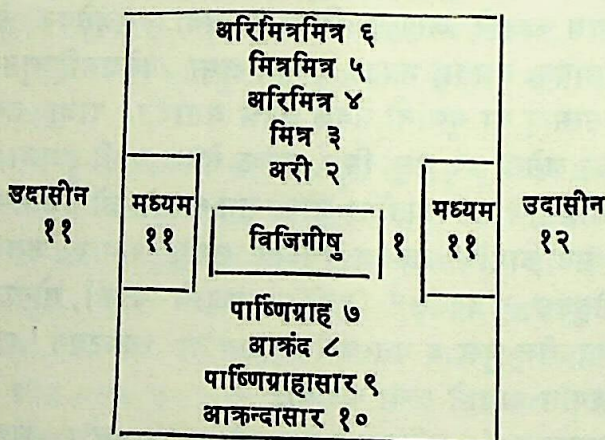 अरिमित्रमित्र ६
मित्रमित्र ५
अरिमित्र ४
मित्र ३
अरी २
उदासीन मध्यम मध्यम उदासीन
११ ११ विजिगीषु १ ११ १२
पार्ष्णिग्राह ७
आक्रंद ८
पार्ष्णिग्राहासार ९
आक्रन्दासार १०